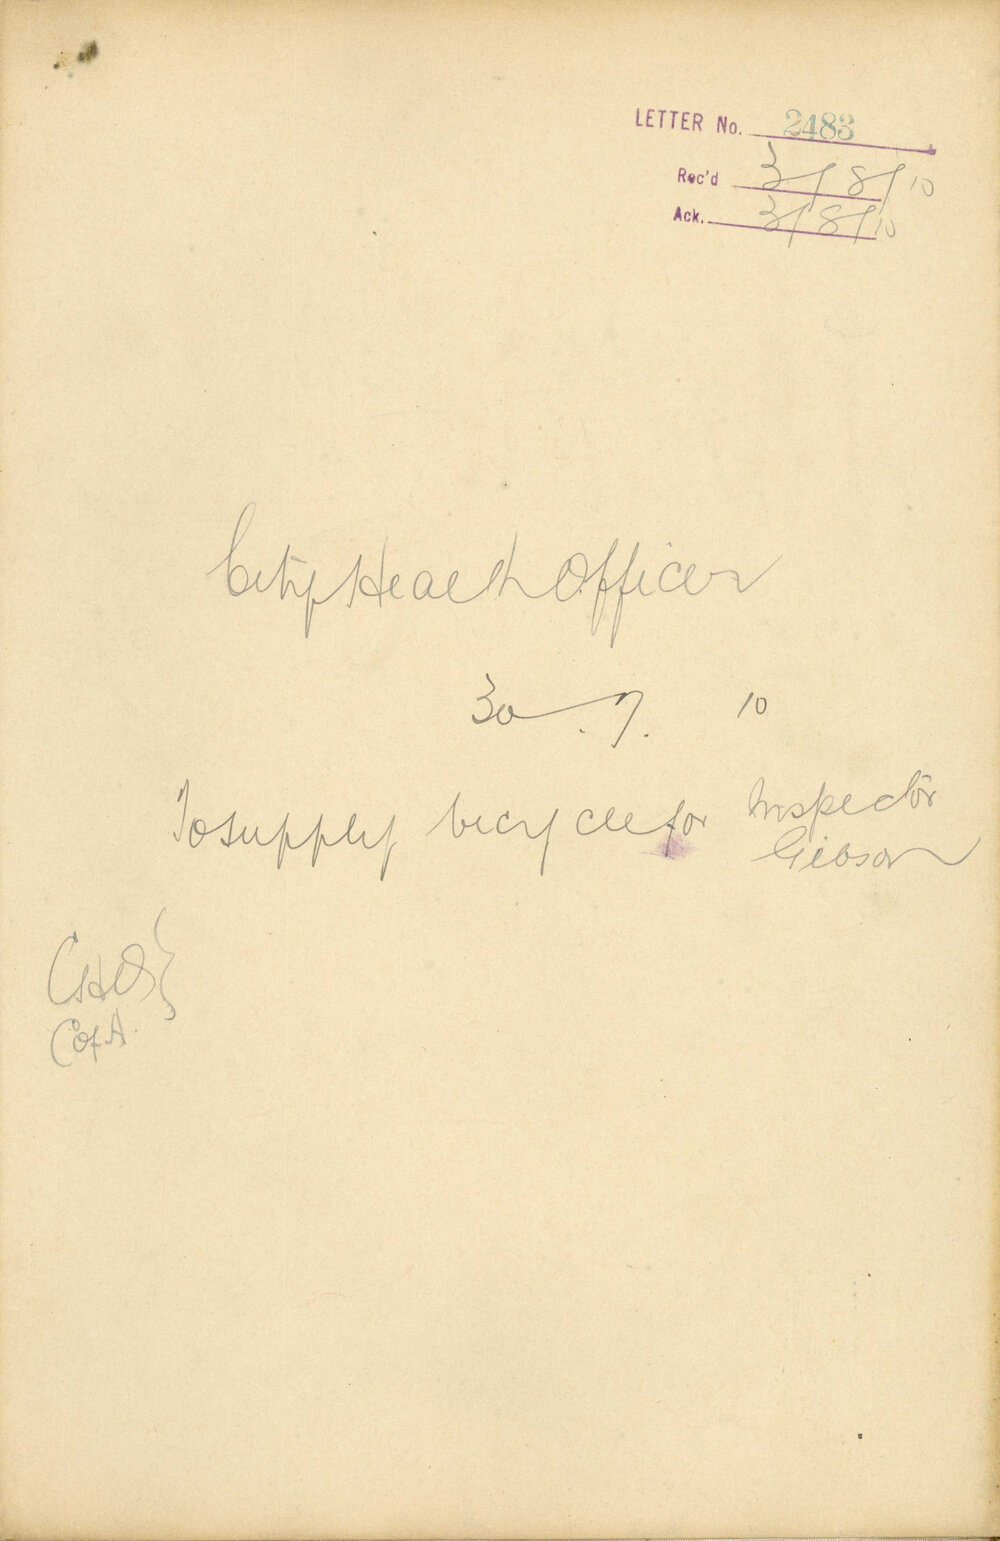 LETTER No. 2483
Rec'd 3/8/10
Ack. 3/8/10
City Health Officer
30.7.10
To supply bicycle for Inspector
Gibson
CHO }
C of A.